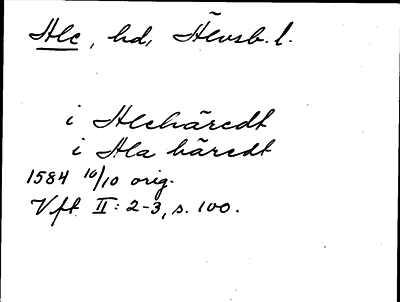 Ale, hd, Älvsb. l.
i Alehäredt
i Ala häredt
1584 10/10 orig.
Vft II: 2-3, s. 100.